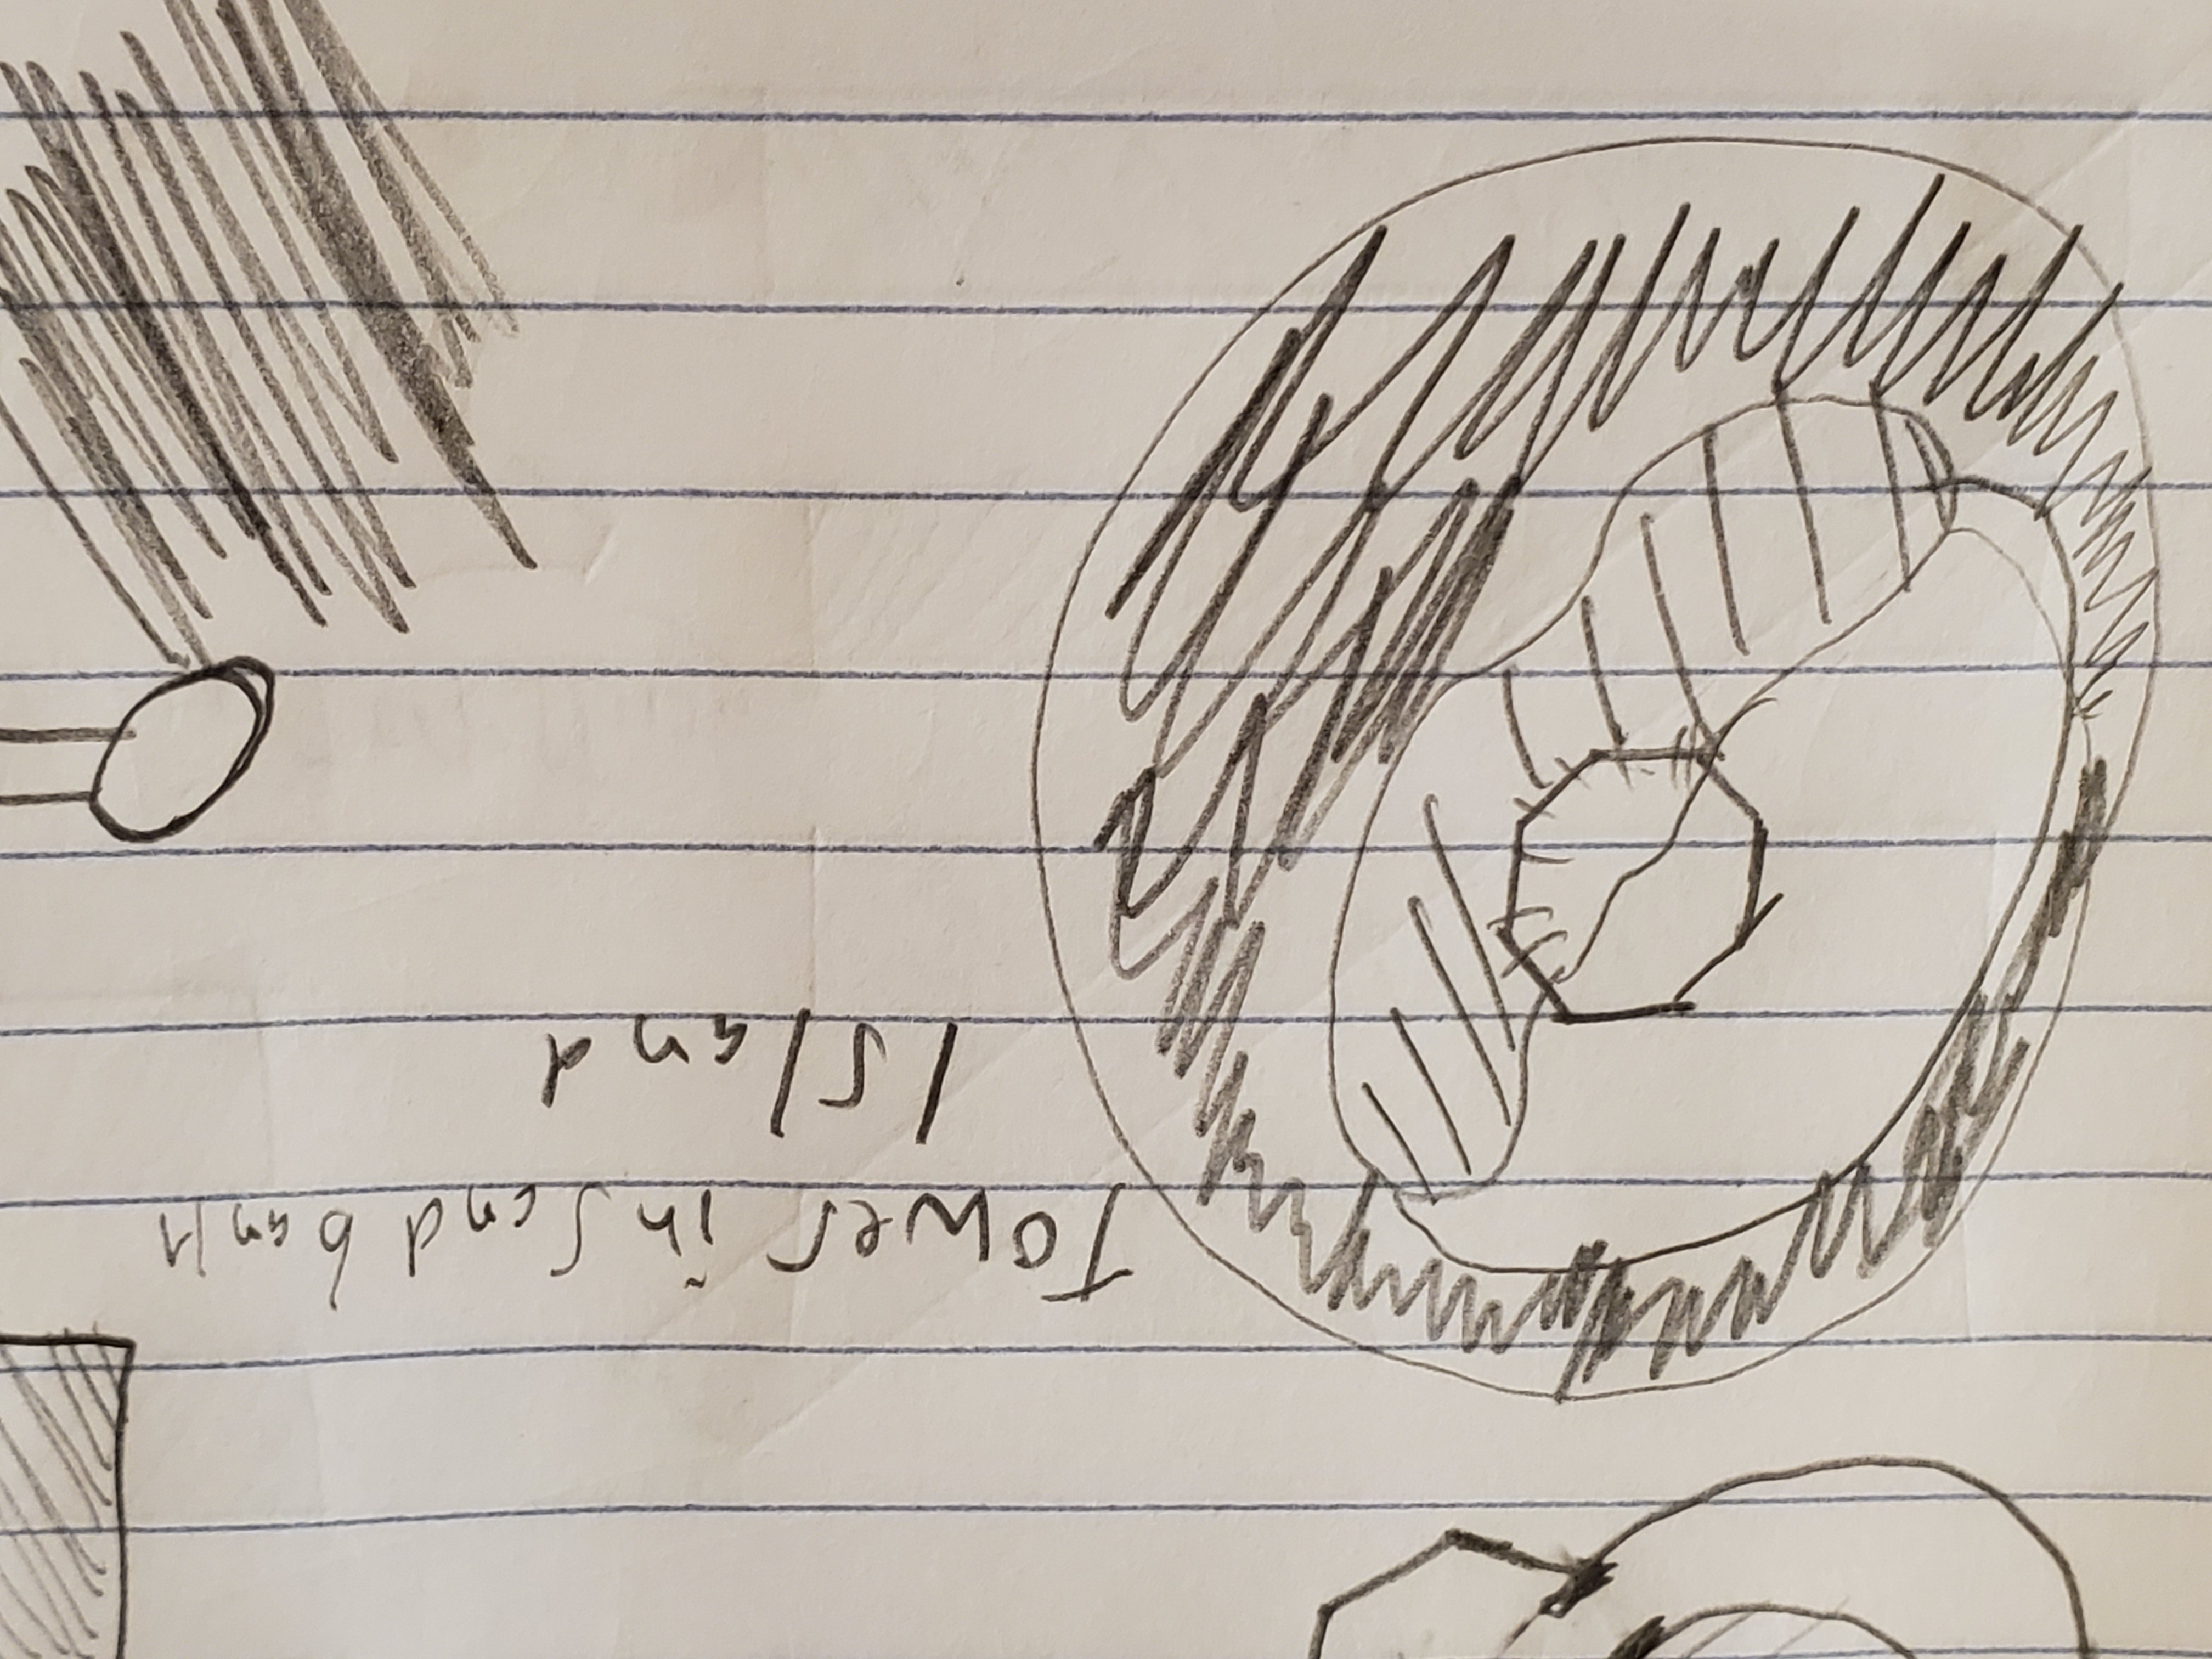 Tower in Sand bank
Island